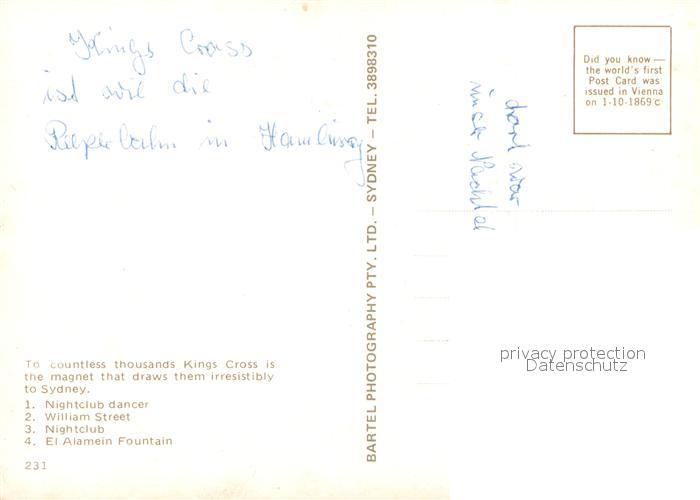 Kings Cross
ist wie die
Reeperbahn in Hamburg
dort war
Nachts
BARTEL PHOTOGRAPHY PTY. LTD. – SYDNEY – TEL. 3898310
Did you know —
the world's first
Post Card was
issued in Vienna
on 1-10-1869
privacy protection
Datenschutz
To countless thousands Kings Cross is
the magnet that draws them irresistibly
to Sydney.
1. Nightclub dancer
2. William Street
3. Nightclub
4. El Alamein Fountain
231